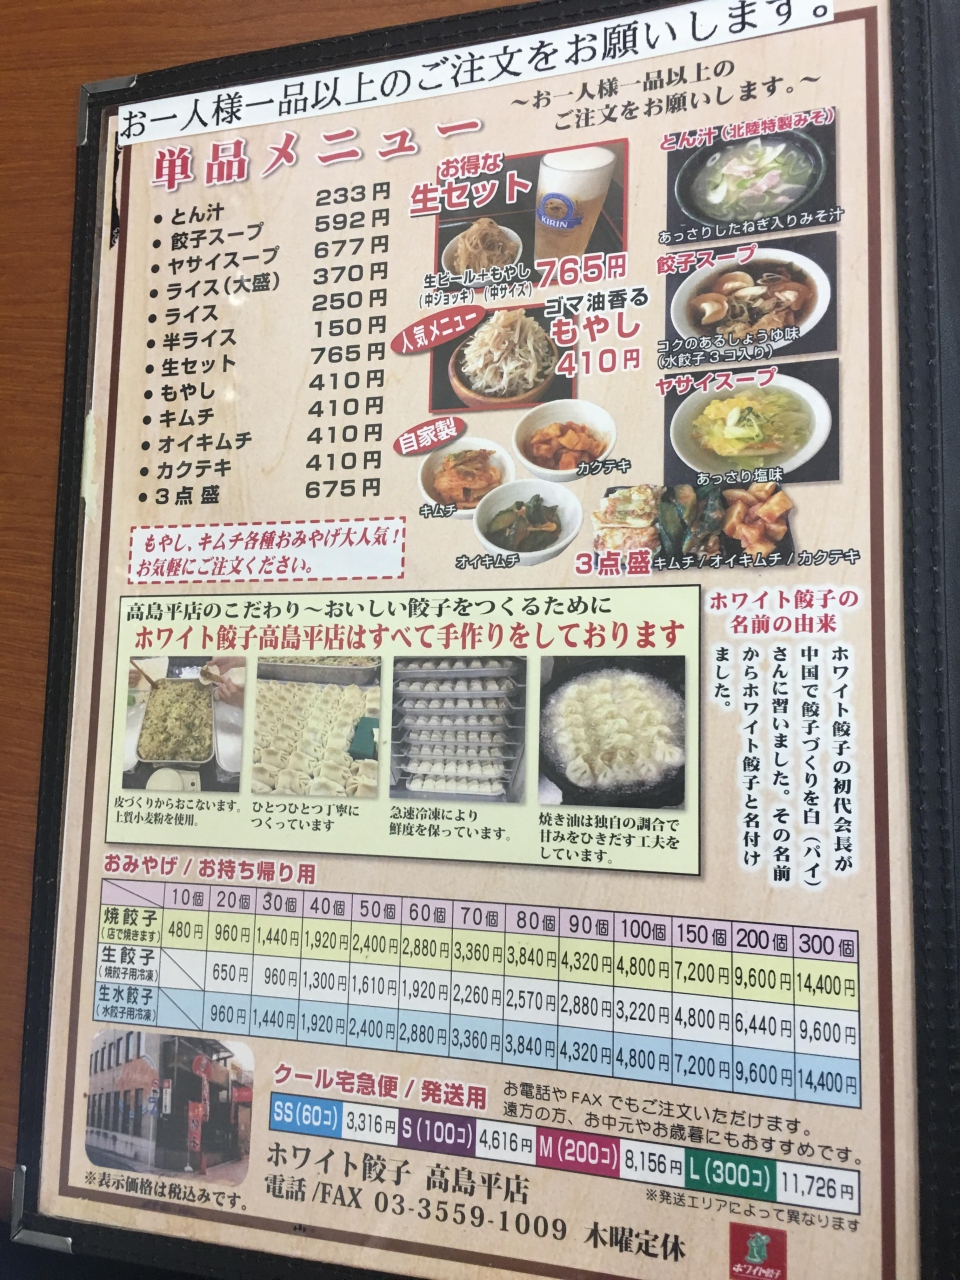 お一人様一品以上のご注文をお願いします。
～お一人様一品以上の
ご注文をお願いします。～
単品メニュー
・とん汁 233円
・餃子スープ 592円
・ヤサイスープ 677円
・ライス(大盛) 370円
・ライス 250円
・半ライス 150円
・生セット 765円
・もやし 410円
・キムチ 410円
・オイキムチ 410円
・カクテキ 410円
・3点盛 675円
お得な
生セット
KIRIN
生ビール+もやし
(中ジョッキ)(中サイズ)
765円
人気メニュー
ゴマ油香る
もやし
410円
自家製
キムチ
カクテキ
オイキムチ
3点盛 キムチ/オイキムチ/カクテキ
とん汁(北陸特製みそ)
あっさりしたねぎ入りみそ汁
餃子スープ
コクのあるしょうゆ味
(水餃子3コ入り)
ヤサイスープ
あっさり塩味
もやし、キムチ各種おみやげ大人気!
お気軽にご注文ください。
高島平店のこだわり～おいしい餃子をつくるために
ホワイト餃子高島平店はすべて手作りをしております
皮づくりからおこないます。
上質小麦粉を使用。
ひとつひとつ丁寧に
つくっています
急速冷凍により
鮮度を保っています。
焼き油は独自の調合で
甘みをひきだす工夫を
しています。
ホワイト餃子の
名前の由来
ホワイト餃子の初代会長が
中国で餃子づくりを白(パイ)
さんに習いました。その名前
からホワイト餃子と名付け
ました。
おみやげ/お持ち帰り用
10個 20個 30個 40個 50個 60個 70個 80個 90個 100個 150個 200個 300個
焼餃子
(店で焼きます)
480円 960円 1,440円 1,920円 2,400円 2,880円 3,360円 3,840円 4,320円 4,800円 7,200円 9,600円 14,400円
生餃子
(焼餃子用冷凍)
650円 960円 1,300円 1,610円 1,920円 2,260円 2,570円 2,880円 3,220円 4,800円 6,440円 9,600円
生水餃子
(水餃子用冷凍)
960円 1,440円 1,920円 2,400円 2,880円 3,360円 3,840円 4,320円 4,800円 7,200円 9,600円 14,400円
クール宅急便/発送用
お電話やFAXでもご注文いただけます。
遠方の方、お中元やお歳暮にもおすすめです。
SS(60コ) 3,316円 S(100コ) 4,616円 M(200コ) 8,156円 L(300コ) 11,726円
※発送エリアによって異なります
ホワイト餃子 高島平店
電話/FAX 03-3559-1009 木曜定休
※表示価格は税込みです。
ホワイト餃子